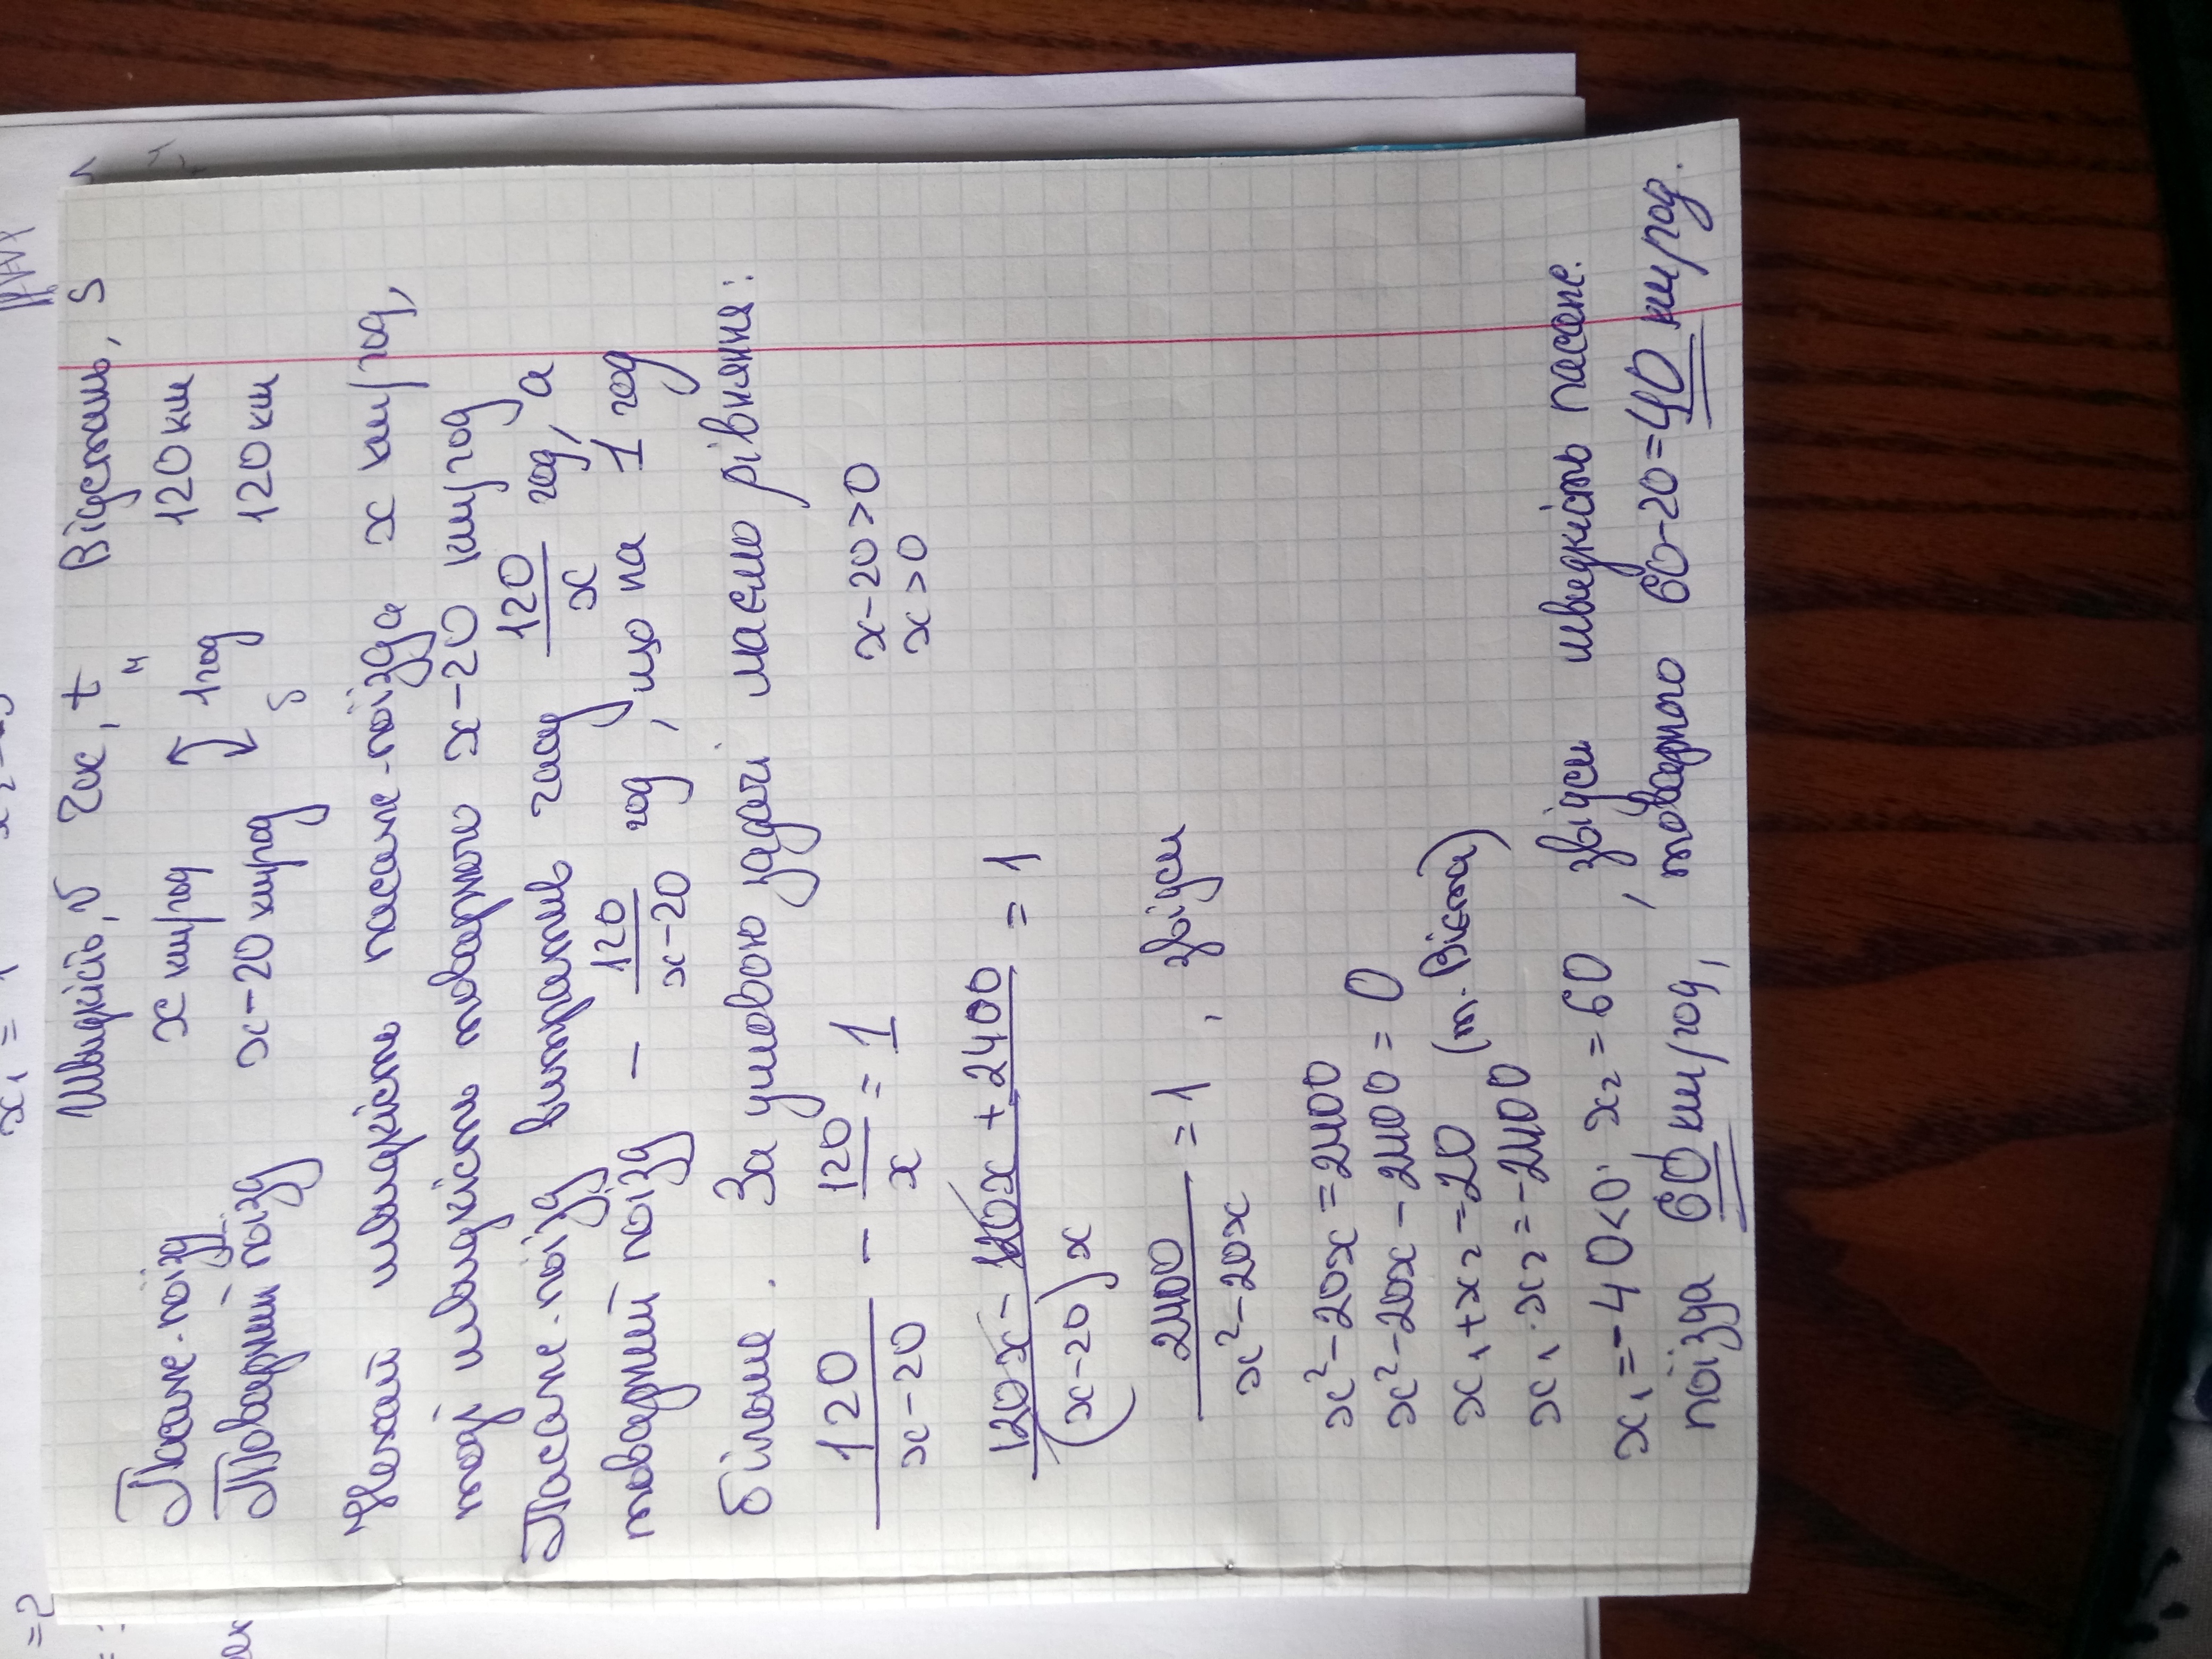 Швидкість, v Час, t Відстань, S
Пасаж. поїзд x км/год 120 км
м
1 год
Товарний поїзд x-20 км/год 120 км
б
Нехай швидкість пасаж-поїзда x км/год,
тоді швидкість товарного x-20 км/год
Пасаж-поїзд витратив часу 120/x год, а
товарний поїзд - 120/x-20 год, що на 1 год
більше. За умовою задачі маємо рівняння:
120/x-20 - 120/x = 1
x-20>0
x>0
120x - 120x + 2400/(x-20)x = 1
2400/x²-20x = 1, звідси
x²-20x=2400
x²-20x-2400=0
x₁+x₂=20 (т. Вієта)
x₁·x₂=-2400
x₁=-40<0. x₂=60, звідси швидкість пасаж.
поїзда 60 км/год, товарного 60-20=40 км/год.
x₁ =
=2